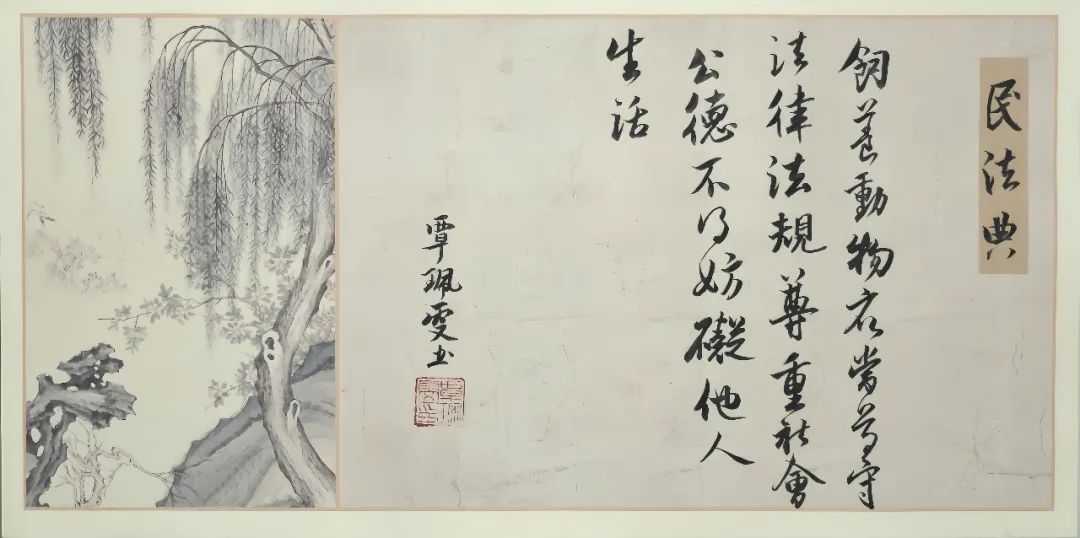 民法典
飼養動物应當遵守
法律法規尊重社會
公德不得妨礙他人
生活
覃珮雯书